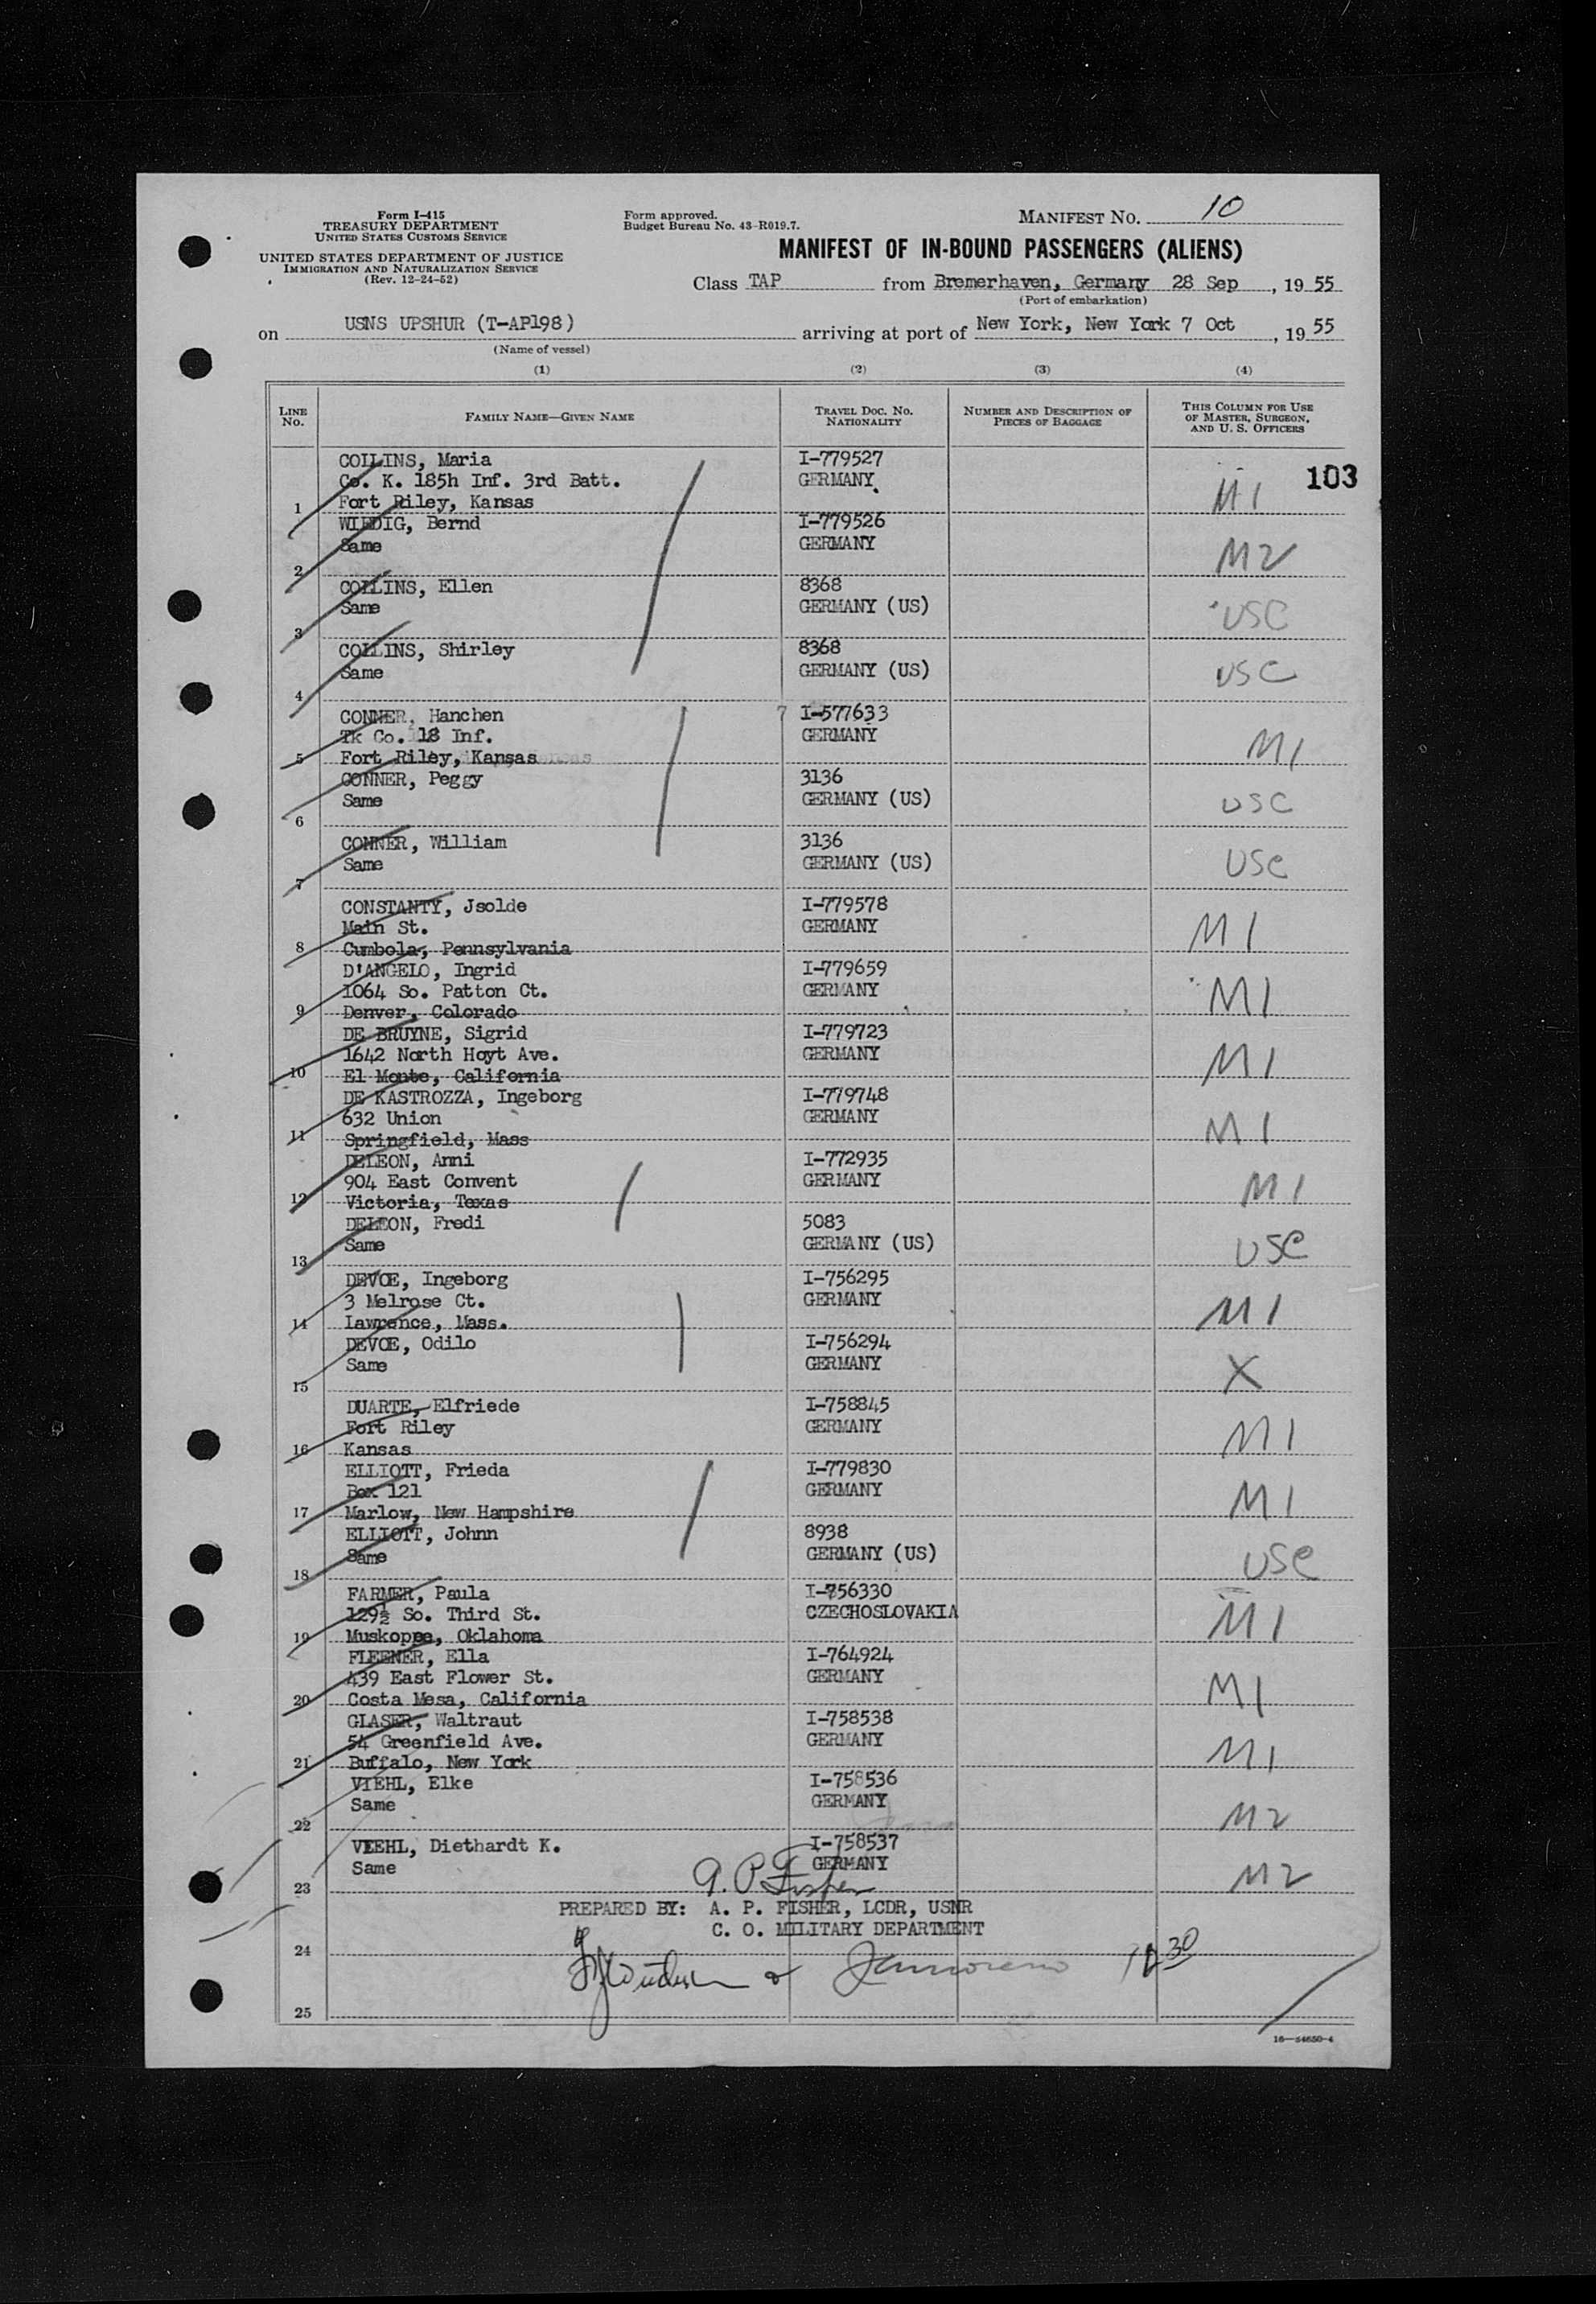 Form I-415
TREASURY DEPARTMENT
UNITED STATES CUSTOMS SERVICE
UNITED STATES DEPARTMENT OF JUSTICE
IMMIGRATION AND NATURALIZATION SERVICE
(Rev. 12-24-52)
Form approved.
Budget Bureau No. 43-R019.7.
MANIFEST NO. 10
MANIFEST OF IN-BOUND PASSENGERS (ALIENS)
Class TAP from Bremerhaven, Germany 28 Sep, 19 55
(Port of embarkation)
on USNS UPSHUR (T-AP198) arriving at port of New York, New York 7 Oct, 19 55
(Name of vessel)
(1) (2) (3) (4)
LINE NO. FAMILY NAME—GIVEN NAME TRAVEL DOC. NO. NATIONALITY NUMBER AND DESCRIPTION OF PIECES OF BAGGAGE THIS COLUMN FOR USE OF MASTER, SURGEON, AND U. S. OFFICERS
103
COLLINS, Maria I-779527
Co. K. 185h Inf. 3rd Batt. GERMANY
1 Fort Riley, Kansas M1
WIEDIG, Bernd I-779526
Same GERMANY M2
2
COLLINS, Ellen 8368
Same GERMANY (US) USC
3
COLLINS, Shirley 8368
Same GERMANY (US) USC
4
CONNER, Hanchen 7 I-577633
Tk Co. 18 Inf. GERMANY M1
5 Fort Riley, Kansas
CONNER, Peggy 3136
Same GERMANY (US) USC
6
CONNER, William 3136
Same GERMANY (US) USC
7
CONSTANTY, Jsolde I-779578
Main St. GERMANY M1
8 Cumbola, Pennsylvania
D'ANGELO, Ingrid I-779659
1064 So. Patton Ct. GERMANY M1
9 Denver, Colorado
DE BRUYNE, Sigrid I-779723
1642 North Hoyt Ave. GERMANY M1
10 El Monte, California
DE KASTROZZA, Ingeborg I-779748
632 Union GERMANY M1
11 Springfield, Mass
DELEON, Anni I-772935
904 East Convent GERMANY M1
12 Victoria, Texas
DELEON, Fredi 5083
Same GERMANY (US) USC
13
DEVOE, Ingeborg I-756295
3 Melrose Ct. GERMANY M1
14 Lawrence, Mass.
DEVOE, Odilo I-756294
Same GERMANY X
15
DUARTE, Elfriede I-758845
Fort Riley GERMANY M1
16 Kansas
ELLIOTT, Frieda I-779830
Box 121 GERMANY M1
17 Marlow, New Hampshire
ELLIOTT, Johnn 8938
Same GERMANY (US) USC
18
FARMER, Paula I-756330
129½ So. Third St. CZECHOSLOVAKIA M1
19 Muskopee, Oklahoma
FLEENER, Ella I-764924
439 East Flower St. GERMANY M1
20 Costa Mesa, California
GLASER, Waltraut I-758538
54 Greenfield Ave. GERMANY M1
21 Buffalo, New York
VIEHL, Elke I-758536
Same GERMANY M2
22
VIEHL, Diethardt K. I-758537
Same GERMANY M2
23 A. P. Fisher
PREPARED BY: A. P. FISHER, LCDR, USNR
C. O. MILITARY DEPARTMENT
24
25
16—54650-4